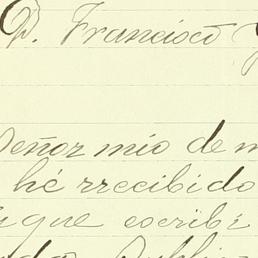 D. Francisco
Señor mio de m
hé rrecibido
que escribi